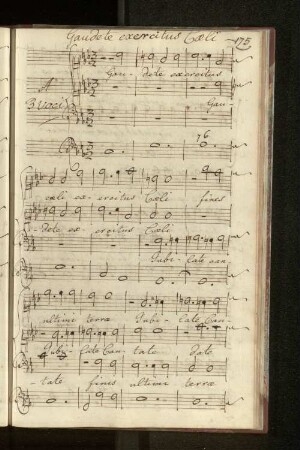 Gaudete exercitus Cœli
175
Gau- dete exercitus
A
3 voci
Gau-
76
cæli ex-ercitus Cœli fines
-dete ex-ercitus Cœli
Jubi-late can-
ultimi terræ Jubi-late Can-
Jubi-late Can-tate date
-tate fines ultimi terræ